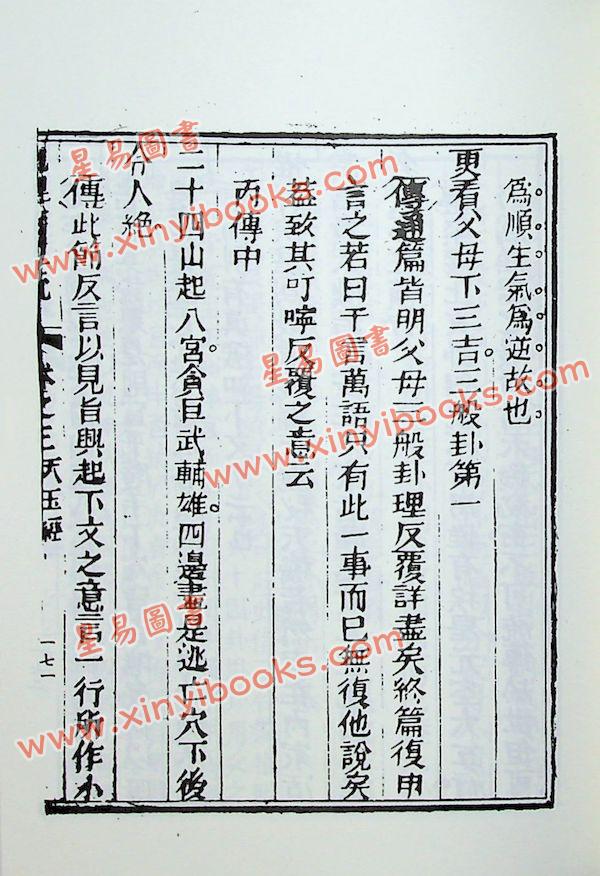 為順生氣為逆故也
更看父母下三吉三般卦第一
傳通篇皆明父母三般卦理反覆詳盡矣終篇復申
言之若曰千言萬語只有此一事而已無復他說矣
益致其叮嚀反覆之意云
內傳中
二十四山起八宮貪巨武輔雄四邊盡是逃亡穴下後
令人絶
傳此節反言以見旨興起下文之意言一行所作小
卷之三天玉經
一七一
星易圖書
www.xinyibooks.com
星易圖書
www.xinyibooks.com
星易圖書
www.xinyibooks.com
星易圖書
www.xinyibooks.com